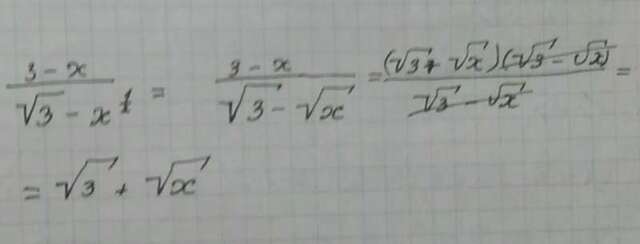 (3 - x)/(√3 - x^1/2) = (3 - x)/(√3 - √x) = ((√3 + √x)(√3 - √x))/(√3 - √x) =
= √3 + √x